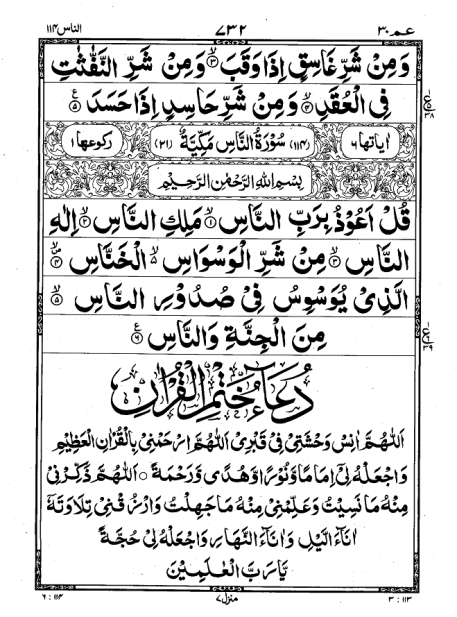 عم ٣٠ ٧٣٢ الناس ١١٤
وَمِنْ شَرِّ غَاسِقٍ اِذَا وَقَبَ ۙ﴿٣﴾ وَمِنْ شَرِّ النَّفّٰثٰتِ
فِى الْعُقَدِ ۙ﴿٤﴾ وَمِنْ شَرِّ حَاسِدٍ اِذَا حَسَدَ ﴿٥﴾ ع
اٰياتها ٦ (١١٤) سُوْرَةُ النَّاسِ مَكِّيَّةٌ (٢١) ركوعها ١
بِسْمِ اللهِ الرَّحْمٰنِ الرَّحِيْمِ
قُلْ اَعُوْذُ بِرَبِّ النَّاسِ ۙ﴿١﴾ مَلِكِ النَّاسِ ۙ﴿٢﴾ اِلٰهِ
النَّاسِ ۙ﴿٣﴾ مِنْ شَرِّ الْوَسْوَاسِ ۙ۬ الْخَنَّاسِ ﴿٤﴾
الَّذِىْ يُوَسْوِسُ فِىْ صُدُوْرِ النَّاسِ ۙ﴿٥﴾
مِنَ الْجِنَّةِ وَالنَّاسِ ﴿٦﴾ ع
دُعَاءُ خَتْمِ الْقُرْاٰنِ
اَللّٰهُمَّ اٰنِسْ وَحْشَتِىْ فِىْ قَبْرِىْ اَللّٰهُمَّ ارْحَمْنِىْ بِالْقُرْاٰنِ الْعَظِيْمِ
وَاجْعَلْهُ لِىْ اِمَامًا وَّنُوْرًا وَّهُدًى وَّرَحْمَةً ○ اَللّٰهُمَّ ذَكِّرْنِىْ
مِنْهُ مَا نَسِيْتُ وَعَلِّمْنِىْ مِنْهُ مَا جَهِلْتُ وَارْزُقْنِىْ تِلَاوَتَهٗ
اٰنَآءَ الَّيْلِ وَاٰنَآءَ النَّهَارِ وَاجْعَلْهُ لِىْ حُجَّةً
يَّا رَبَّ الْعٰلَمِيْنَ
٣ : ١١٣ منزل ٧ ٦ : ١١٤